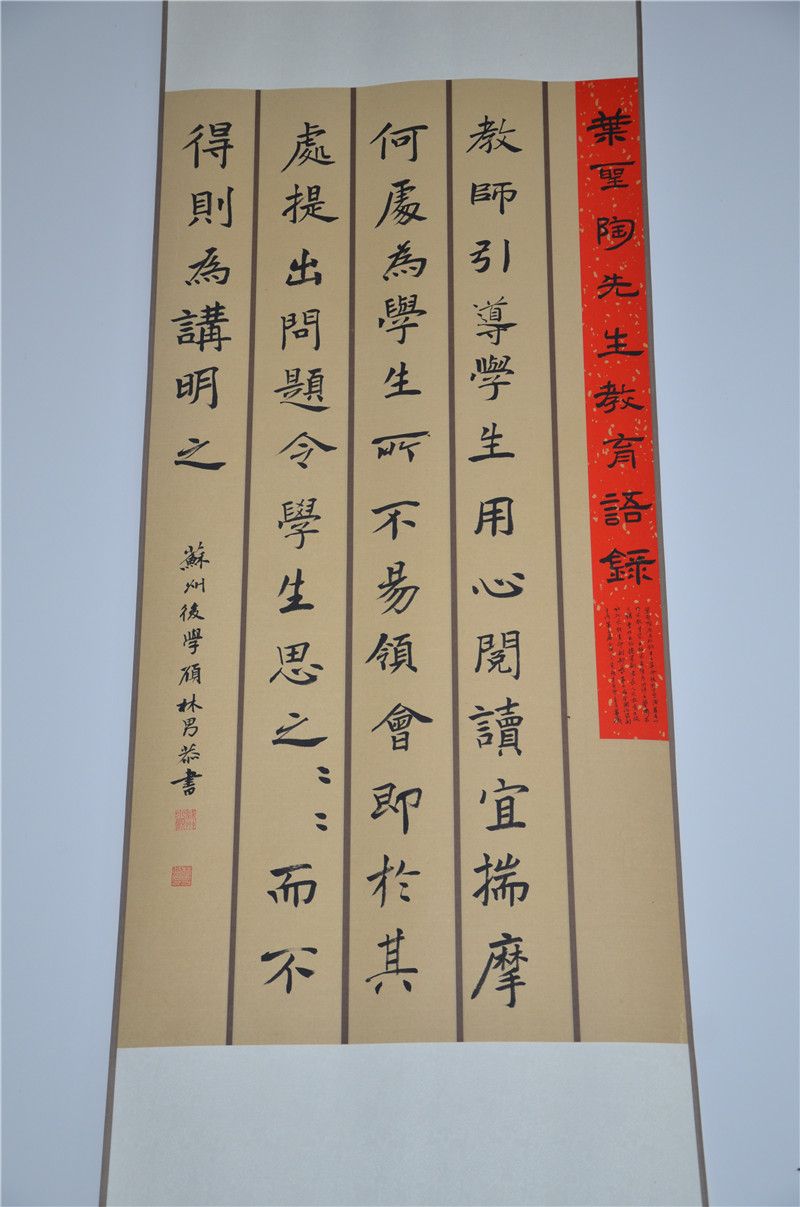 葉聖陶先生教育語録
教師引導學生用心閱讀宜揣摩
何處為學生所不易領會即於其
處提出問題令學生思之〻〻而不
得則為講明之
蘇州後學顧林男恭書